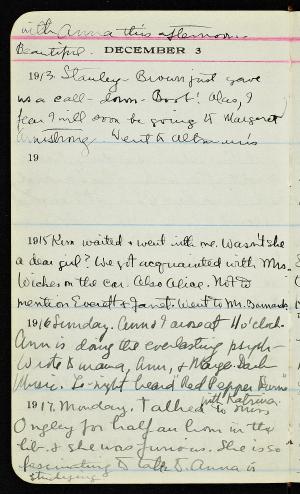 with Anna this afternoon.
Beautiful. DECEMBER 3
1913 Stanley-Brown just gave
us a call-down - Boob! Alas, I
fear I will soon be going to Margaret
Armstrong. Went to
19
1915 Kim waited & went with me. Wasn't she
a dear girl? We got acquainted with Mrs.
Wiches on the car. Also Alice. Not to
mention Everett & Janet. Went to Mr. Barnard's
1916 Sunday. Ann & I arose at 11 o'clock.
Ann is doing the everlasting psych-
Wrote to mama, Ann, & Marge. Dash
Music. To-night heard "Red Pepper Burns"
with Katrina.
1917. Monday. Talked to Miss
Ongley for half an hour in the
lib. & she was furious. She is so
fascinating to talk to. Anna is
studying